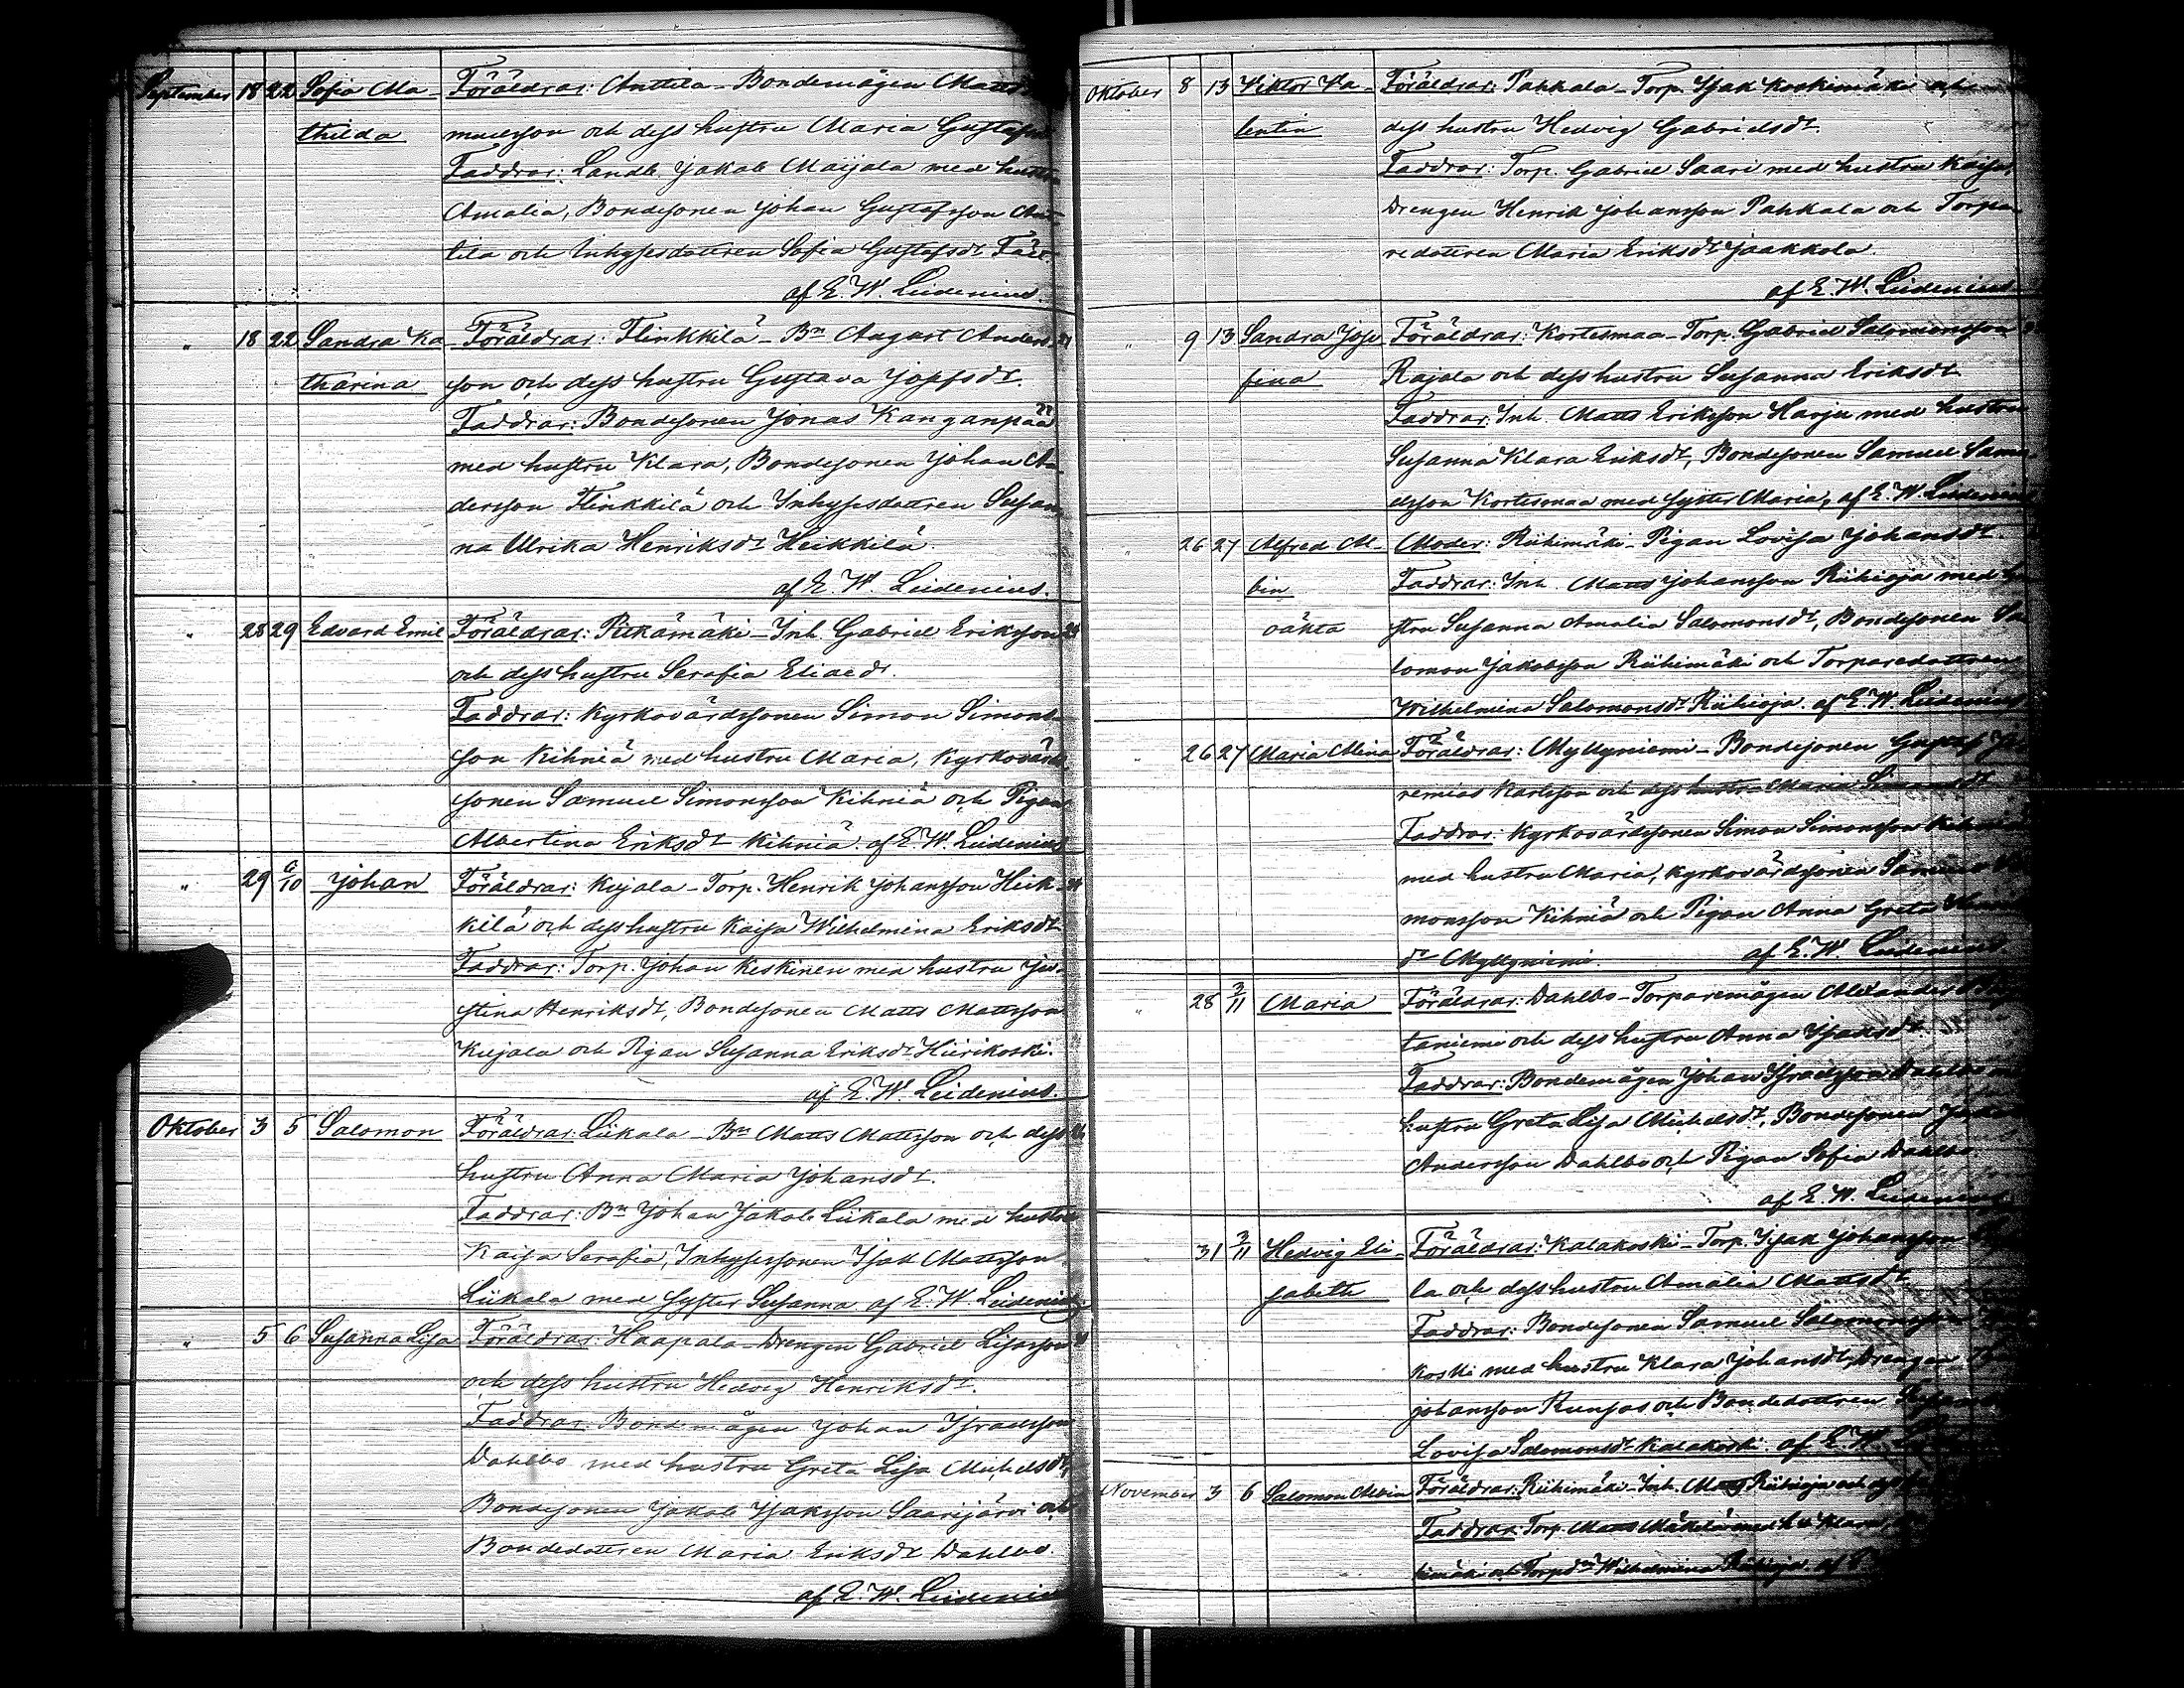 September 18 22 Sofia Ma- Föräldrar: Anttila - Bondemågen Matts
thilda muelsson och dess hustru Maria Gustafs
Faddrar: Landb. Jakob Maijala med hustru
Amalia, Bondesonen Johan Gustafsson Ant-
tila och Inhysesdottren Sofia Gustafsdr
af E. W. Lidenius.
" 18 22 Sandra Ka- Föräldrar: Flinkkilä - Bn August Anders-
tharina son och dess hustru Gustava Josefsdr.
Faddrar: Bondesonen Jonas Kanganpää
med hustru Klara, Bondesonen Johan An-
dersson Flinkkilä och Inhysesdottren Susan-
na Ulrika Henriksdr Heikkilä.
af E. W. Lidenius.
" 28 29 Edvard Emil Föräldrar: Pitkämäki - Inh. Gabriel Eriksson
och dess hustru Serafia Eliaedr.
Faddrar: Kyrkovärdssonen Simon Simons-
son Kihniä med hustru Maria, Kyrkovärds-
sonen Samuel Simonsson Kihniä och Pigan
Albertina Eriksdr Kihniä. af E. W. Lidenius
" 29 6/10 Johan Föräldrar: Kujala - Torp. Henrik Johansson Heik-
kilä och dess hustru Kaisa Wilhelmina Eriksdr.
Faddrar: Torp. Johan Keskinen med hustru Ju-
stina Henriksdr, Bondesonen Matts Mattsson
Kujala och Pigan Susanna Eriksdr Hiirikoski.
af E. W. Lidenius.
Oktober 3 5 Salomon Föräldrar: Liikala - Bn Matts Mattsson och dess
hustru Anna Maria Johansdr.
Faddrar: Bn Johan Jakob Liikala med hustru
Kaisa Serafia, Inhysessonen Isak Mattsson
Liikala med syster Susanna af E. W. Lidenius.
" 5 6 Susanna Lisa Föräldrar: Haapala - Drengen Gabriel Lisasson
och dess hustru Hedvig Henriksdr.
Faddrar: Bondemågen Johan Israelsson
Dahlbo med hustru Greta Lisa Michelsdr,
Bondesonen Jakob Isaksson Saarijärvi och
Bondedottren Maria Eriksdr Dahlbo.
af E. W. Lidenius
Oktober 8 13 Viktor Va- Föräldrar: Pahkala - Torp. Isak Koskimäki och
lentin dess hustru Hedvig Gabrielsdr.
Faddrar: Torp. Gabriel Saari med hustru Kaisa,
Drengen Henrik Johansson Pahkala och Torpa-
redottren Maria Eriksdr Jaakkola.
af E. W. Lidenius
" 9 13 Sandra Jose- Föräldrar: Kortesmaa - Torp. Gabriel Salomonsson
fina Rajala och dess hustru Susanna Eriksdr.
Faddrar: Inh. Matts Eriksson Harju med hustru
Susanna Klara Eriksdr, Bondesonen Samuel Samu-
elsson Kortesmaa med syster Maria, af E. W. Lidenius
" 26 27 Alfred Al- Moder: Riihimäki - Pigan Lovisa Johansdr.
bin Faddrar: Inh. Matts Johansson Riihioja med hu-
oäkta stru Susanna Amalia Salomonsdr, Bondesonen Sa-
lomon Jakobsson Riihimäki och Torparedottren
Wilhelmina Salomonsdr Riihioja. af E. W. Lidenius
" 26 27 Maria Alina Föräldrar: Myllyniemi - Bondesonen Gustaf Je-
remias Karlsson och dess hustru Maria Simonsdr.
Faddrar: Kyrkovärdssonen Simon Simonsson Kihniä
med hustru Maria, Kyrkovärdssonen Samuel Si-
monsson Kihniä och Pigan Anna Greta
dr Myllyniemi. af E. W. Lidenius
" 28 3/11 Maria Föräldrar: Dahlbo - Torparemågen Alexander
taniemi och dess hustru Anna Isaksdr.
Faddrar: Bondemågen Johan Israelsson Dahlbo
hustru Greta Lisa Michelsdr, Bondesonen
Andersson Dahlbo och Pigan Sofia Dahlbo.
af E. W. Lidenius
31 3/11 Hedvig Eli- Föräldrar: Kalakoski - Torp. Isak Johansson
sabeth la och dess hustru Amalia Mattsdr.
Faddrar: Bondesonen Samuel Salomonsson
koski med hustru Klara Johansdr, Drengen
Johansson Runsas och Bondedottren
Lovisa Salomonsdr Kalakoski. af E. W.
November 3 6 Salomon Albin Föräldrar: Riihimäki - Inh. Matts Riihioja och
Faddrar: Torp. Matts Mäkelä med hu Klara
himäki och Torpdn Wilhelmina Riihioja. af